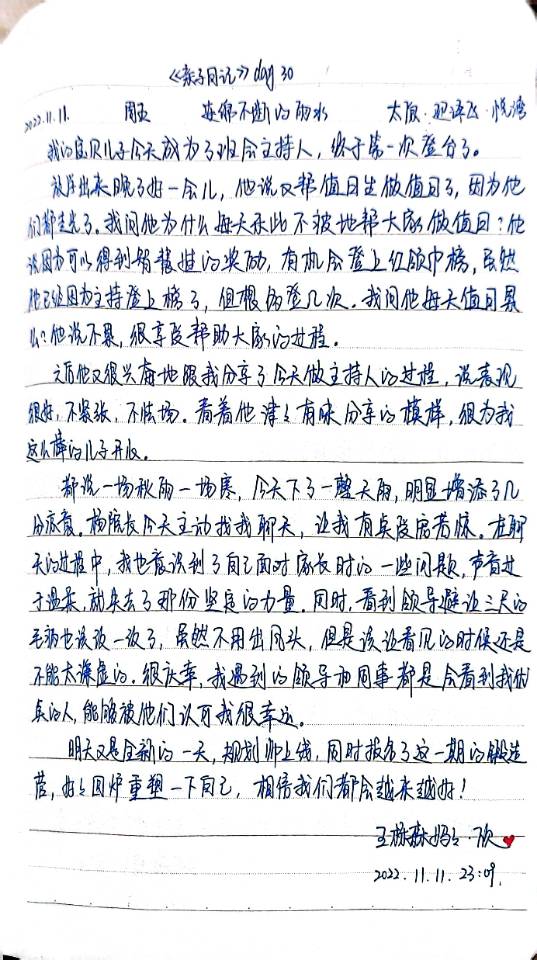 《亲子日记》day 30
2022.11.11. 周五 连绵不断的雨水 太原·迎泽飞·悦湾
我的宝贝儿子今天成为了班会主持人，终于第一次登台了。
放学出来晚了好一会儿，他说又帮值日生做值日了，因为他
们都走光了。我问他为什么每天乐此不疲地帮大家做值日？他
说因为可以得到销替娃的奖励，有机会登上红领巾榜，虽然
他已经因为主持登上榜了，但想多登几次。我问他每天值日累
么？他说不累，很享受帮助大家的过程。
之后他又很兴奋地跟我分享了今天做主持人的过程，说表现
很好，不紧张，不怯场。看着他津津有味分享的模样，很为我
这么棒的儿子开心。
都说一场秋雨一场寒，今天下了一整天雨，明显增添了几
分寒意。杨院长今天主动找我聊天，让我有点受宠若惊。在聊
天的过程中，我也意识到了自己面对家长时的一些问题，声音过
于温柔，就失去了那份坚定的力量。同时，看到领导避让三尺的
毛病也该改一改了，虽然不用出风头，但是该让看见的时候还是
不能太谦虚的。很庆幸，我遇到的领导和同事都是会看到我认
真的人，能够被他们认可我很幸运。
明天又是全新的一天，规划师上线，同时报名了这一期的锻造
营，好好回炉重塑一下自己，相信我们都会越来越好！
王栋森妈妈·欣
2022.11.11. 23:09.